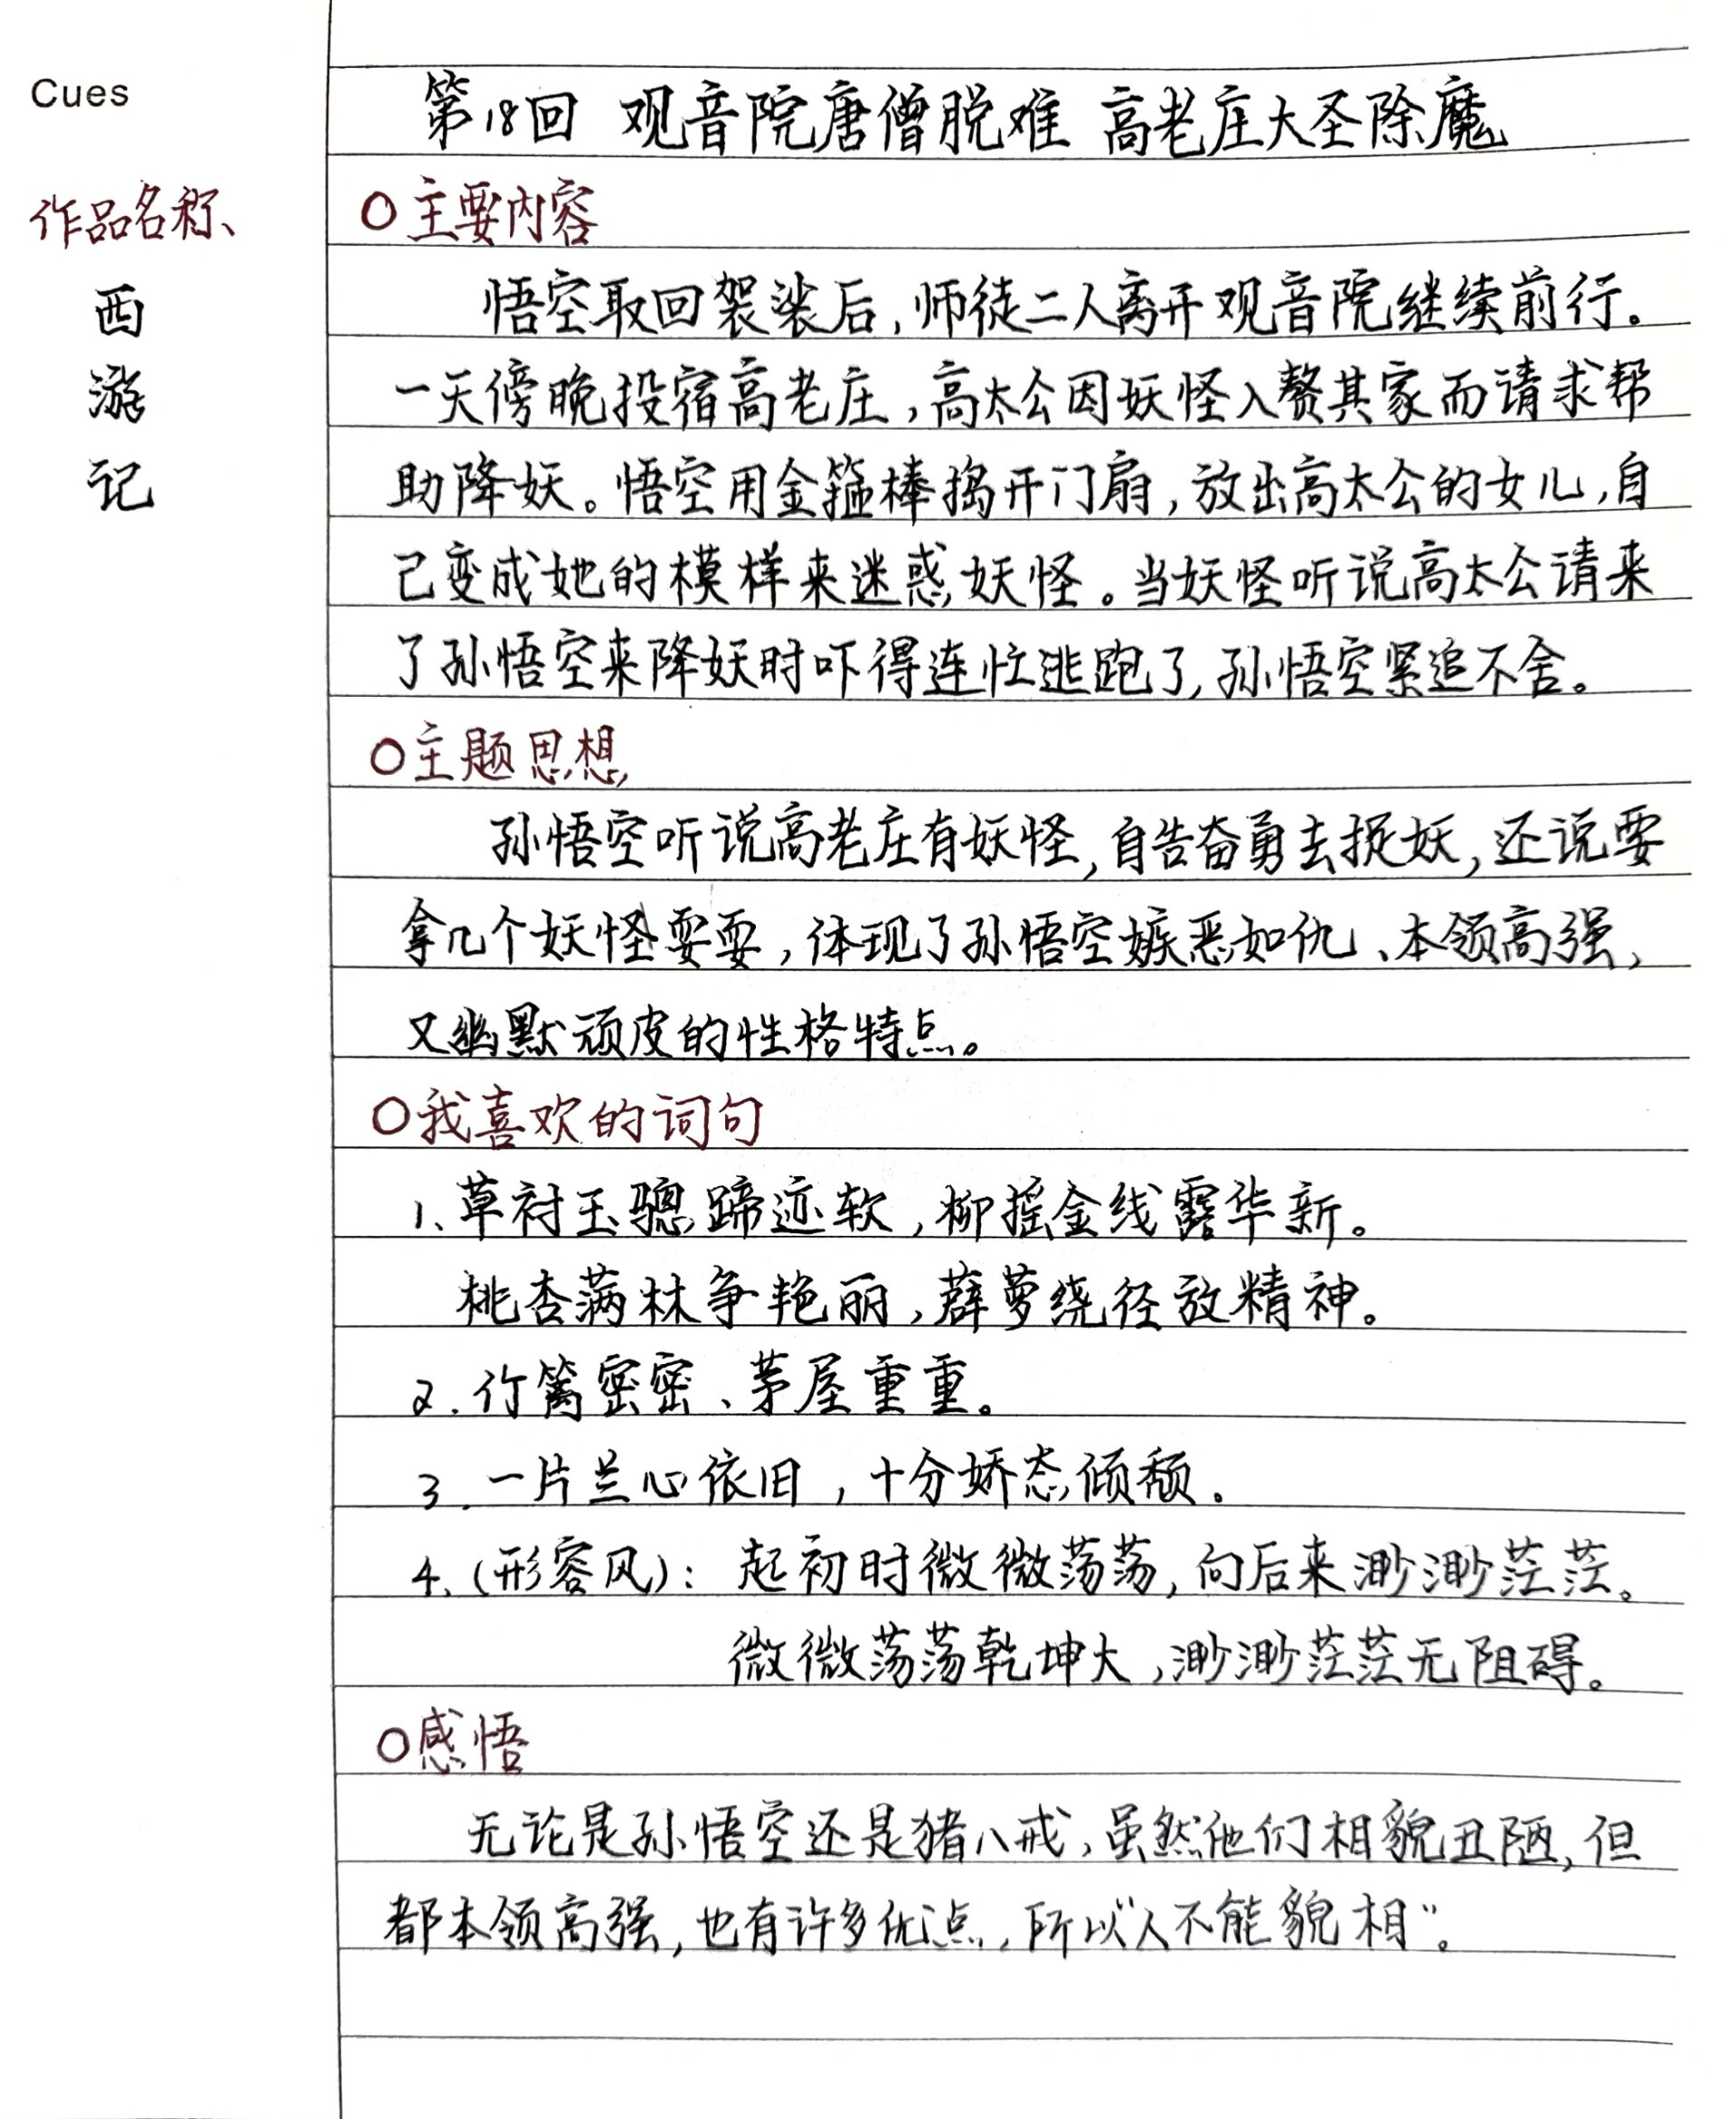 Cues
作品名称、
西
游
记
第18回 观音院唐僧脱难 高老庄大圣除魔
○主要内容
悟空取回袈裟后,师徒二人离开观音院继续前行。
一天傍晚投宿高老庄,高太公因妖怪入赘其家而请求帮
助降妖。悟空用金箍棒捣开门扇,放出高太公的女儿,自
己变成她的模样来迷惑妖怪。当妖怪听说高太公请来
了孙悟空来降妖时吓得连忙逃跑了,孙悟空紧追不舍。
○主题思想
孙悟空听说高老庄有妖怪,自告奋勇去捉妖,还说要
拿几个妖怪耍耍,体现了孙悟空嫉恶如仇、本领高强,
又幽默顽皮的性格特点。
○我喜欢的词句
1、草衬玉骢蹄迹软,柳摇金线露华新。
桃杏满林争艳丽,薜萝绕径放精神。
2. 竹篱密密、茅屋重重。
3. 一片兰心依旧,十分娇态倾颓.
4、(形容风): 起初时微微荡荡,向后来渺渺茫茫。
微微荡荡乾坤大,渺渺茫茫无阻碍。
○感悟
无论是孙悟空还是猪八戒,虽然他们相貌丑陋,但
都本领高强,也有许多优点,所以“人不能貌相”。